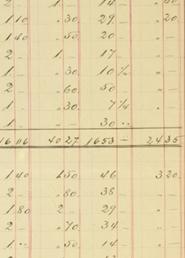 2 1 14 50
1 10 . 30 29 . 20
1 40 . 50 20 —
2 — 1 — 17 —
1 — . 30 10 ½
2 — . 60 50 —
1 — . 30 7 ½ —
1 — 30
16 06 40 27 1653 — 24 35
1 40 1 50 46 3 20
2 — . 80 38 —
1 80 2 — 29 —
2 — . 70 34 —
1 . 50 14 —